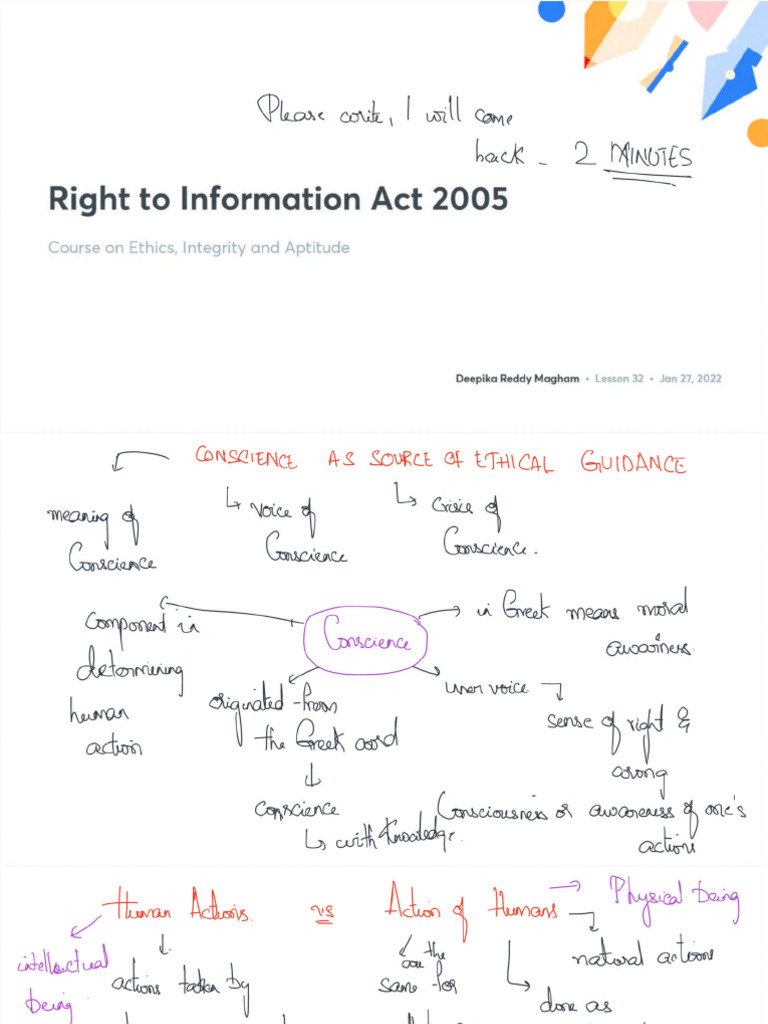 Please write, I will come
back - 2 MINUTES
Right to Information Act 2005
Course on Ethics, Integrity and Aptitude
Deepika Reddy Magham • Lesson 32 • Jan 27, 2022
CONSCIENCE AS SOURCE OF ETHICAL GUIDANCE
meaning of
Conscience
↳ Voice of
Conscience
↳ Crisis of
Conscience.
Component in
determining
human
action
Conscience
→ in Greek means moral
awareness.
originated from
the Greek word
↓
conscience
↳ with knowledge.
inner voice
sense of right &
wrong
Consciousness or awareness of one's
actions
Human Actions. vs Action of Humans → Physical being
intellectual
being
↓
actions taken by
are the
same for
natural actions
done as